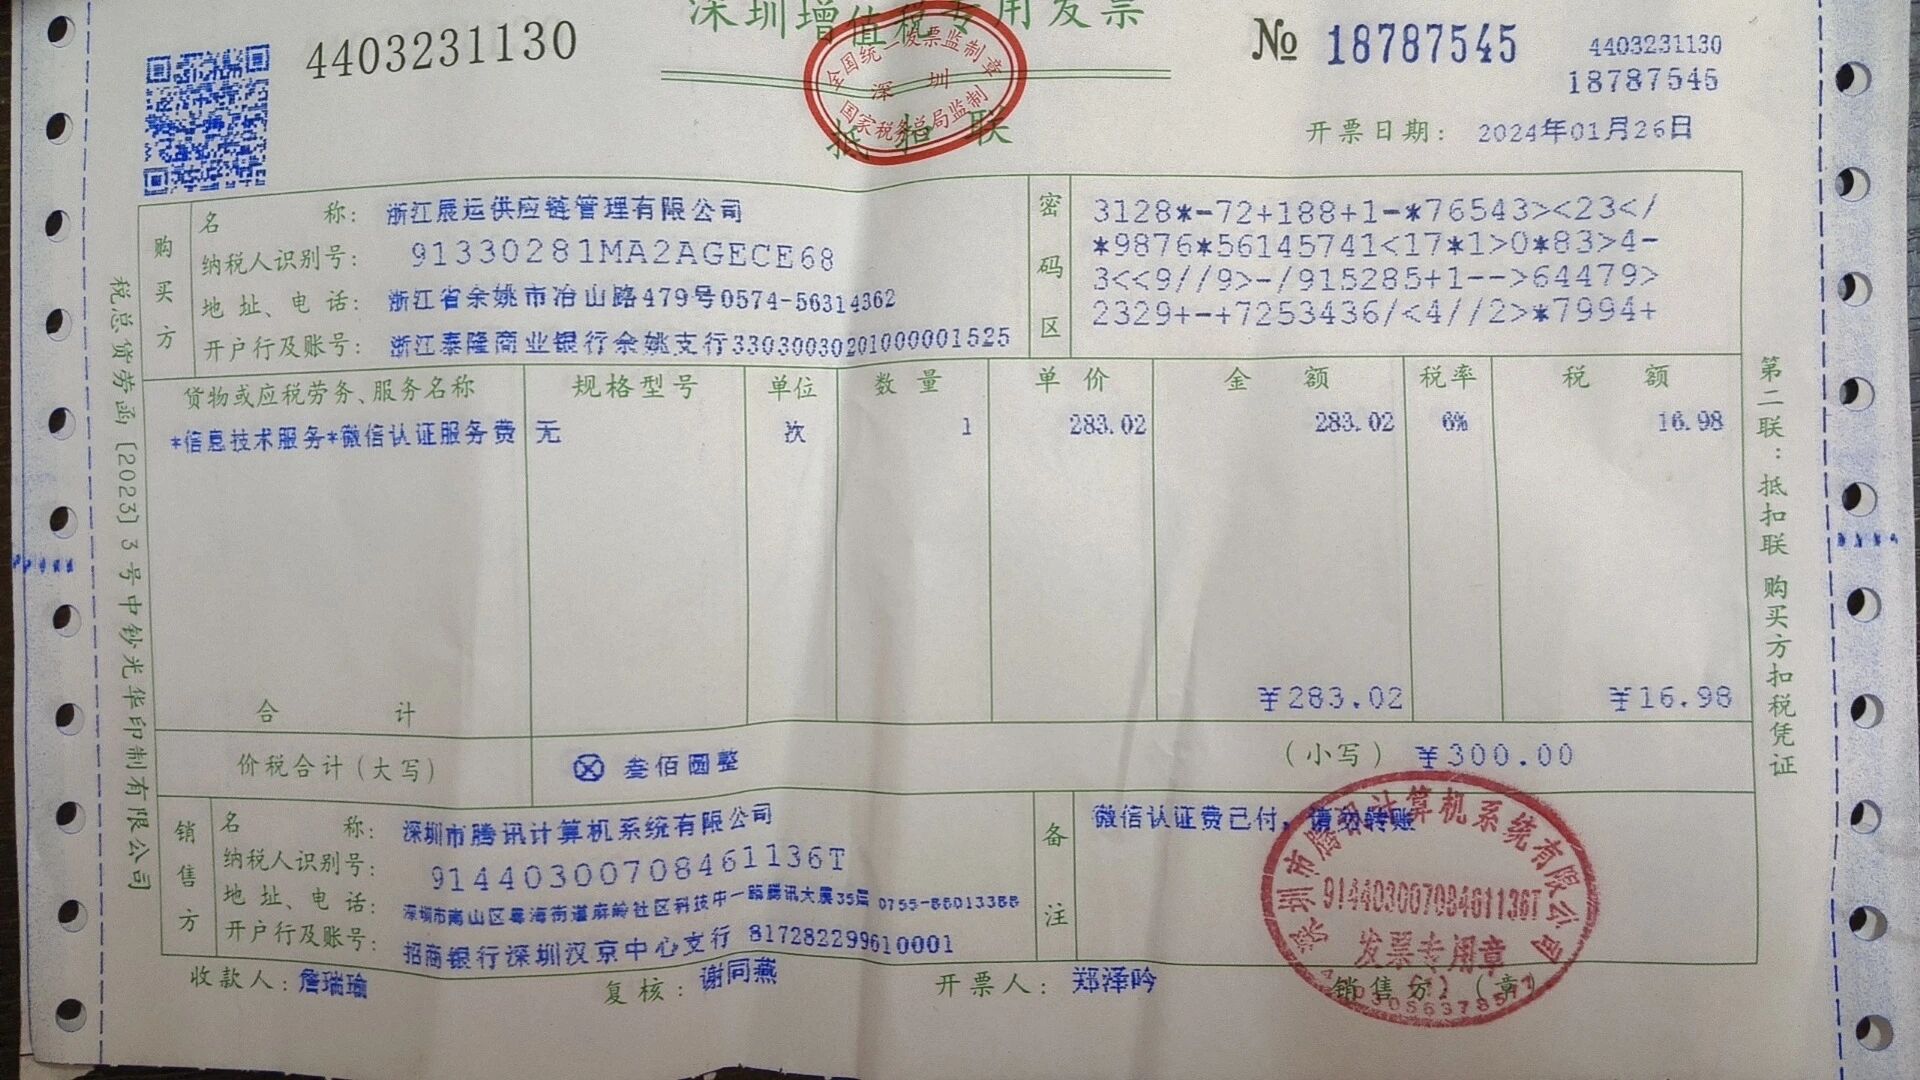 深圳增值税专用发票
4403231130
№ 18787545
4403231130
18787545
全国统一发票监制章
深圳
国家税务总局监制
抵扣联
开票日期: 2024年01月26日
购买方
名 称: 浙江展运供应链管理有限公司
纳税人识别号: 91330281MA2AGECE68
地 址、电 话: 浙江省余姚市冶山路479号0574-56314362
开户行及账号: 浙江泰隆商业银行余姚支行3303003020100000​1525
密码区
3128*-72+188+1-*76543><23</
*9876*56145741<17*1>0*83>4-
3<<9//9>-/915285+1-->64479>
2329+-+7253436/<4//2>*7994+
货物或应税劳务、服务名称 规格型号 单位 数 量 单 价 金 额 税率 税 额
*信息技术服务*微信认证服务费 无 次 1 283.02 283.02 6% 16.98
合 计 ¥283.02 ¥16.98
价税合计(大写) ⊗ 叁佰圆整 (小写) ¥300.00
销售方
名 称: 深圳市腾讯计算机系统有限公司
纳税人识别号: 91440300708461136T
地 址、电 话: 深圳市南山区粤海街道麻岭社区科技中一路腾讯大厦35层 0755-86013388
开户行及账号: 招商银行深圳汉京中心支行 817282299610001
备注
微信认证费已付，请勿转账
收款人: 詹瑞瑜 复核: 谢同燕 开票人: 郑泽吟 销售方: (章)
深圳市腾讯计算机系统有限公司
91440300708461136T
发票专用章
税总货劳函[2023]3号中钞光华印制有限公司
第二联:抵扣联 购买方扣税凭证